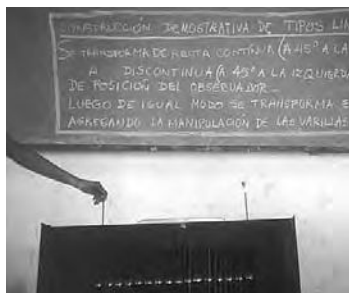 CONSTRUCCIÓN DEMOSTRATIVA DE TIPOS LIN
SE TRANSFORMA DE RECTA CONTÍNUA (A 45º A LA
A DISCONTINUA (A 45º A LA IZQUIERDA
DE POSICIÓN DEL OBSERVADOR
LUEGO DE IGUAL MODO SE TRANSFORMA E
AGREGANDO LA MANIPULACIÓN DE LAS VARILLAS